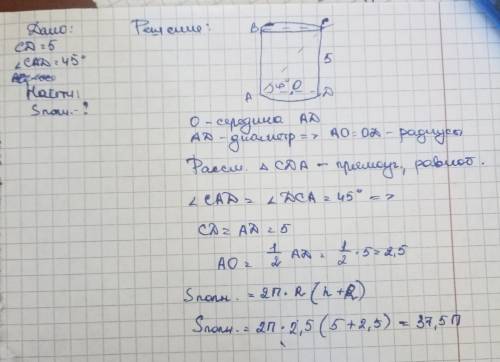 Дано: Решение:
CD=5
∠CAD=45°
Найти:
Sполн.-?
B C
5
45° O
A D
O - середина AD
AD - диаметр => AO=OD - радиусы
Рассм. △CDA - прямоуг, равноб.
∠CAD = ∠DCA = 45° =>
CD = AD = 5
AO = 1/2 AD = 1/2 · 5 = 2,5
Sполн. = 2π · R (h+R)
Sполн. = 2π · 2,5 (5+2,5) = 37,5π